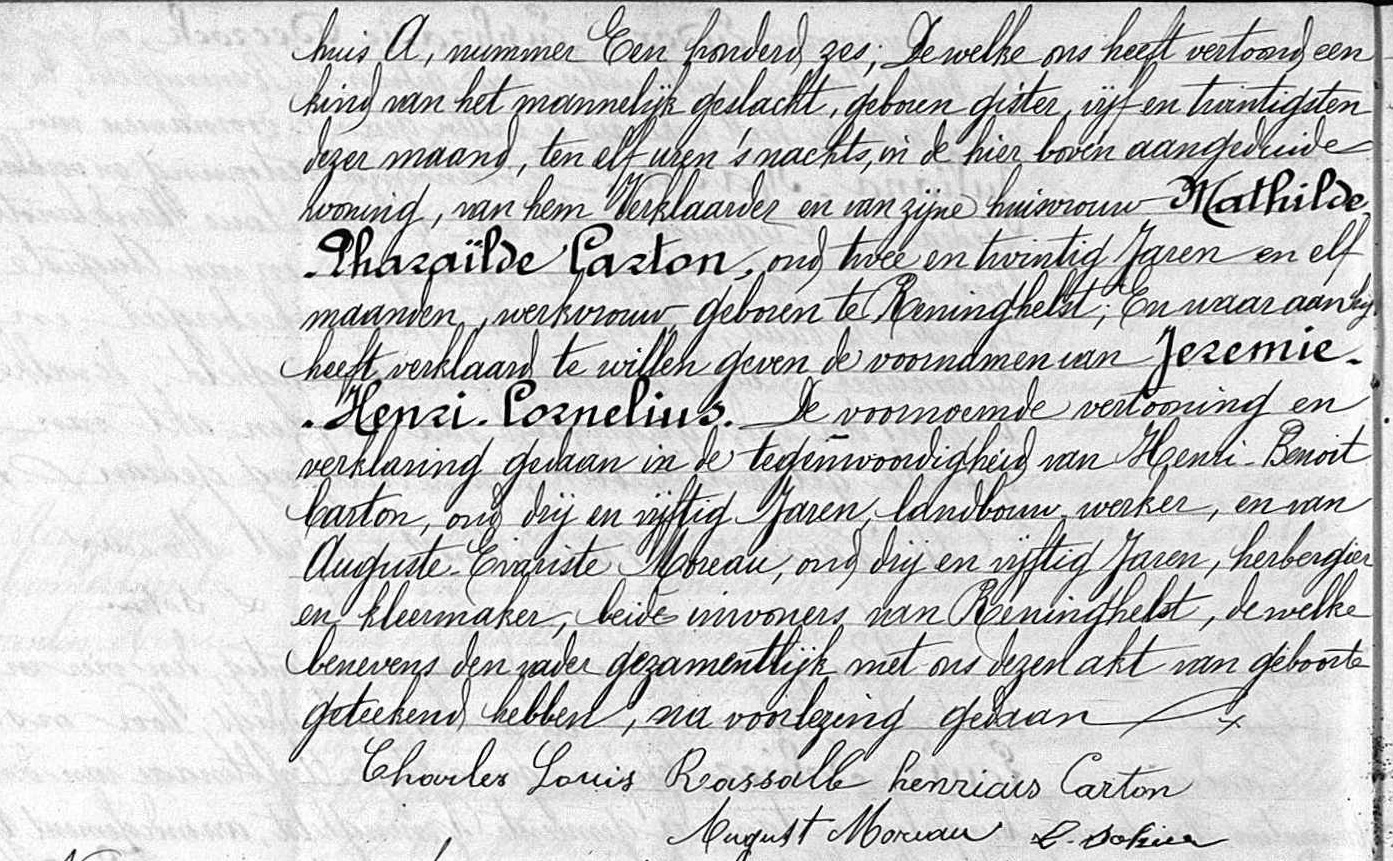 huis A, nummer Een honderd zes; De welke ons heeft vertoond een
kind van het mannelijk geslacht, geboren gister, vijf en twintigsten
dezer maand, ten elf uren 's nachts, in de hier boven aangeduide
woning, van hem Verklaarder en van zijne huisvrouw Mathilde
Pharaïlde Carton, oud twee en twintig Jaren en elf
maanden, werkvrouw geboren te Reninghelst; En waar aan hij
heeft verklaard te willen geven de voornamen van Jeremie-
-Henri-Cornelius. De voornoemde vertooning en
verklaring gedaan in de tegenwoordigheid van Henri-Benoit
Carton, oud drij en vijftig Jaren, landbouw werker, en van
Auguste-Evariste Moreau, oud drij en vijftig Jaren, herbergier
en kleermaker, beide inwoners van Reninghelst, de welke
benevens den vader gezamentlijk met ons dezen akt van geboorte
geteekend hebben, na voorlezing gedaan
Charles Louis Rassalle henricus Carton
August Moreau